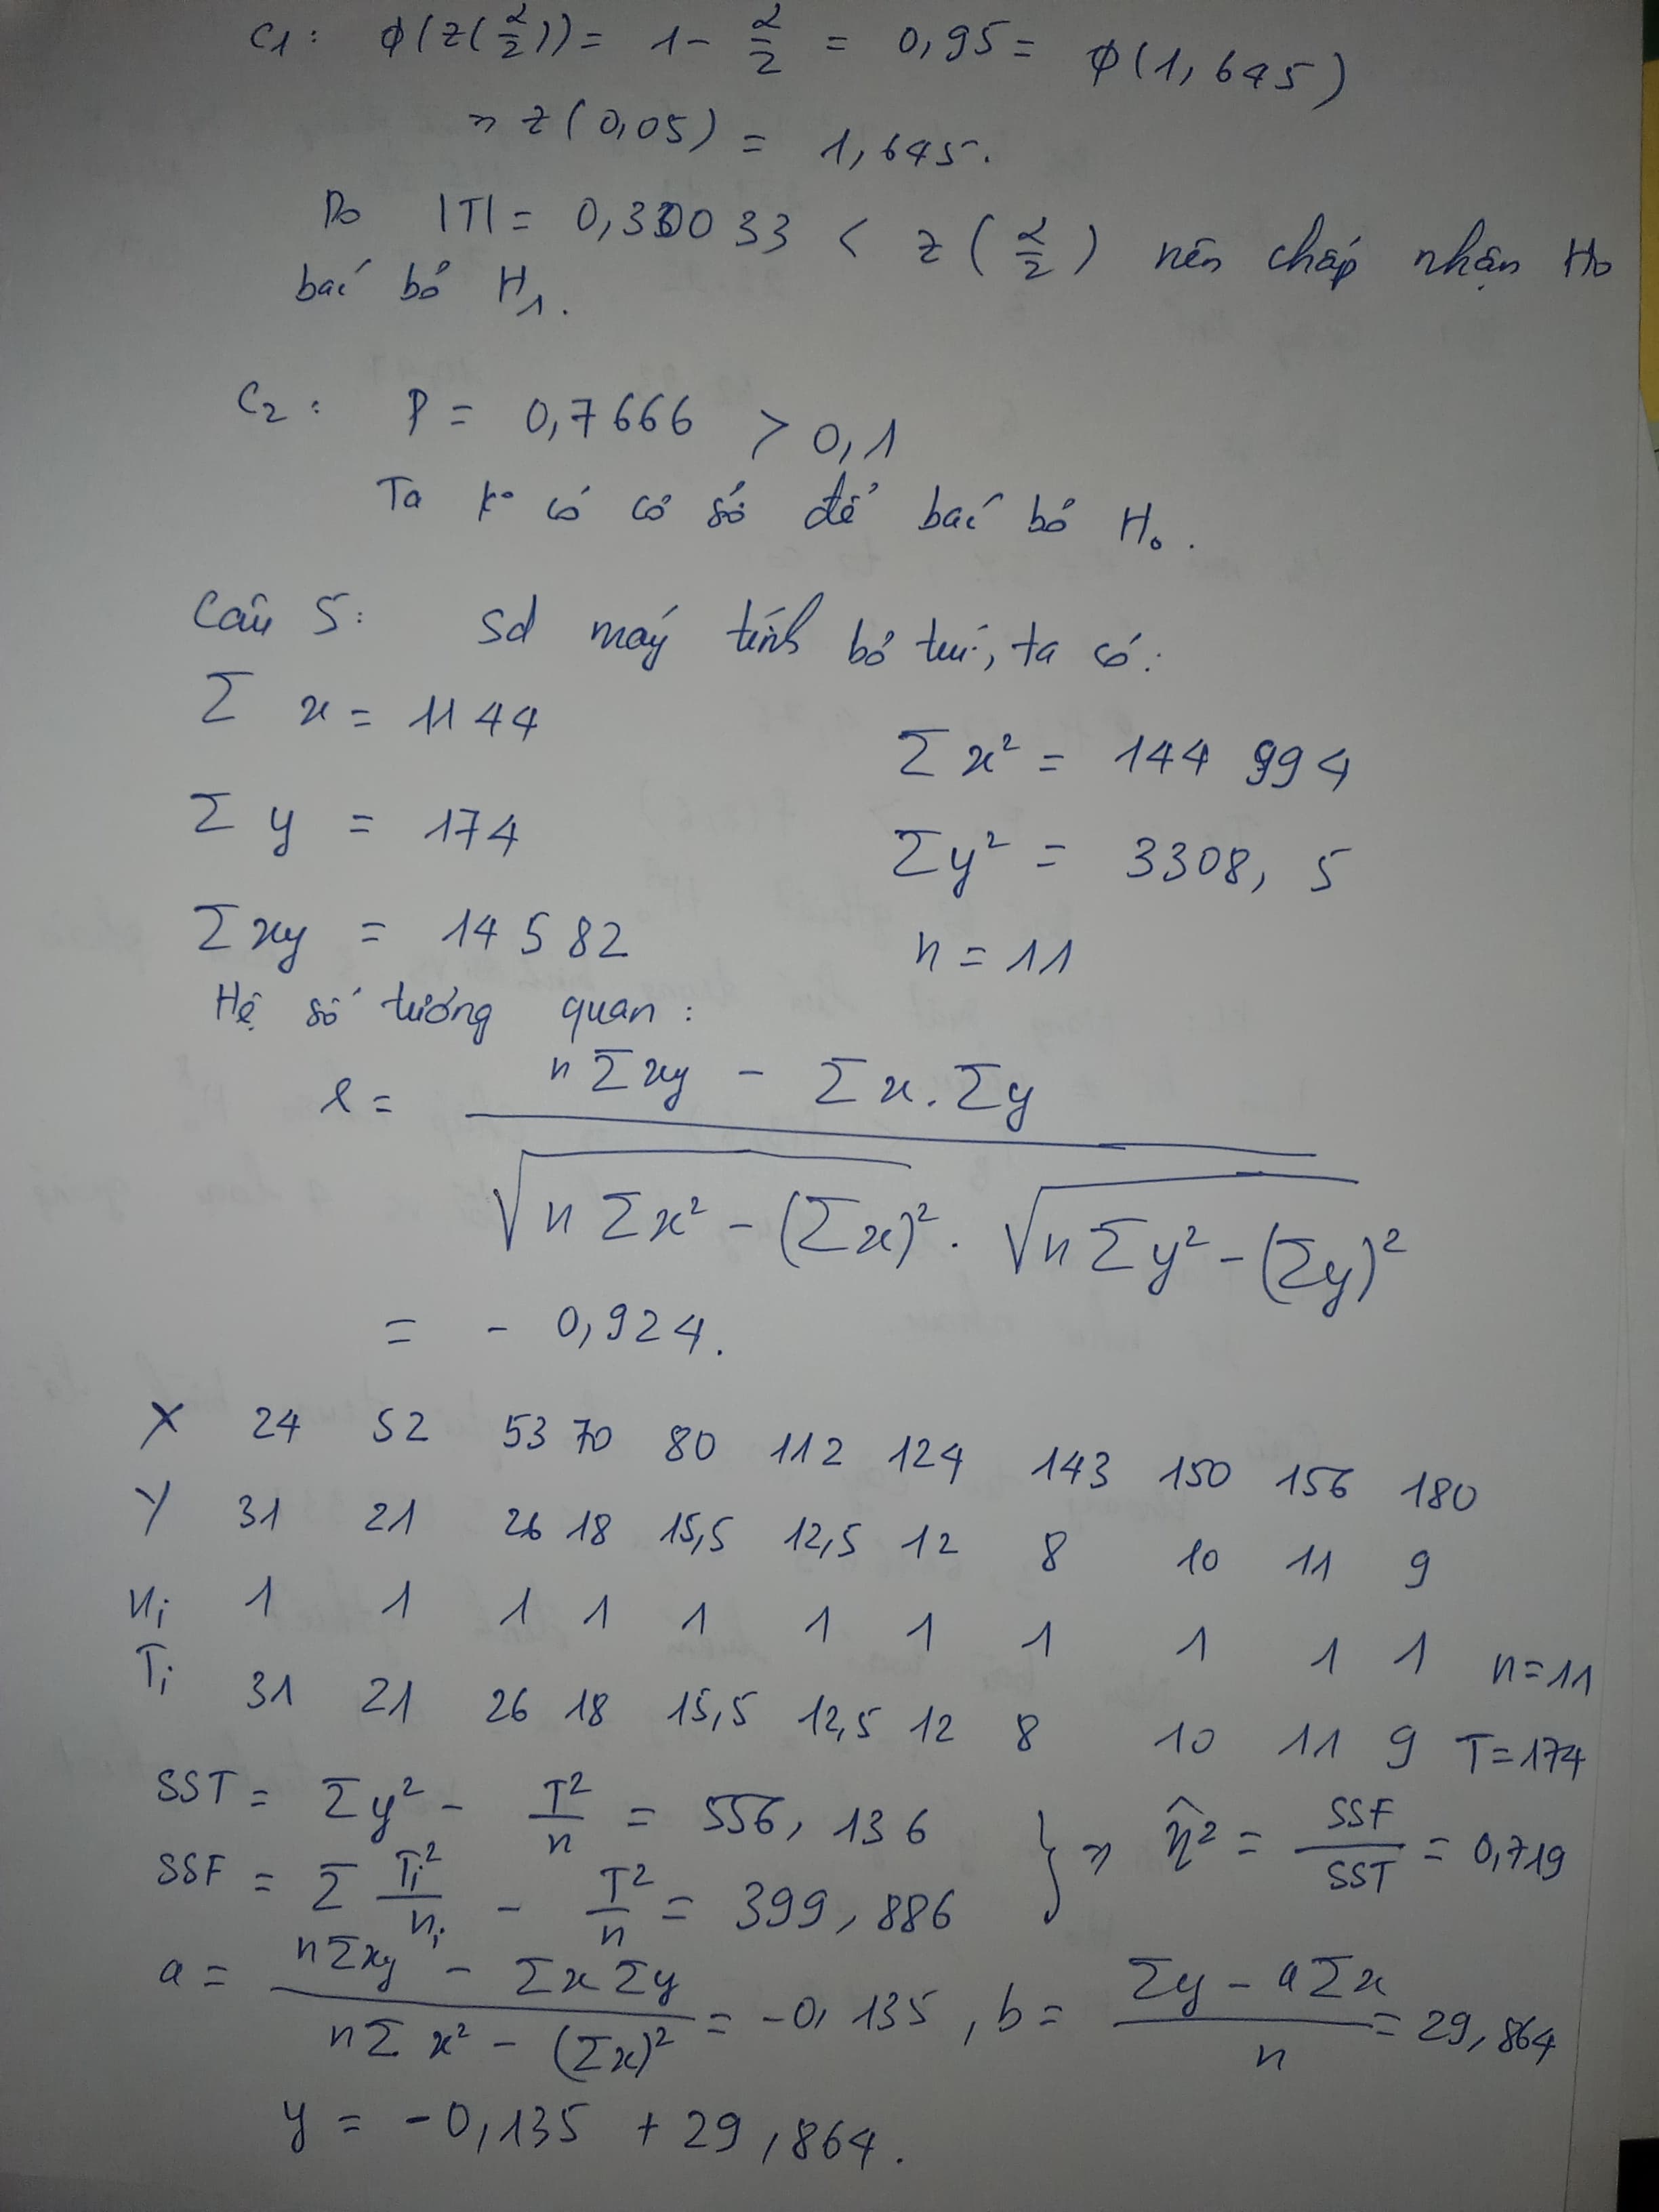 C1: ϕ(z(α/2)) = 1 - α/2 = 0,95 = ϕ(1,645)
=> z(0,05) = 1,645.
Do |T| = 0,33033 < z(α/2) nên chấp nhận H₀
bác bỏ H₁.
C2: P = 0,7666 > 0,1
Ta k° có cơ sở để bác bỏ H₀.
Câu 5: Sd máy tính bỏ túi, ta có:
Σ x = 1144
Σ x² = 144 994
Σ y = 174
Σ y² = 3308, 5
Σ xy = 14 582
n = 11
Hệ số tương quan:
r = (n Σ xy - Σ x . Σ y) / (√(n Σ x² - (Σ x)²) . √(n Σ y² - (Σ y)²))
= - 0,924.
X 24 52 53 70 80 112 124 143 150 156 180
Y 31 21 26 18 15,5 12,5 12 8 10 11 9
nᵢ 1 1 1 1 1 1 1 1 1 1 1 n=11
Tᵢ 31 21 26 18 15,5 12,5 12 8 10 11 9 T=174
SST = Σ y² - T²/n = 556, 136
SSF = Σ Tᵢ²/nᵢ - T²/n = 399, 886
} => η̂² = SSF/SST = 0,719
a = (n Σ xy - Σ x Σ y) / (n Σ x² - (Σ x)²) = -0, 135, b = (Σ y - a Σ x) / n = 29, 864
y = -0,135 + 29,864.